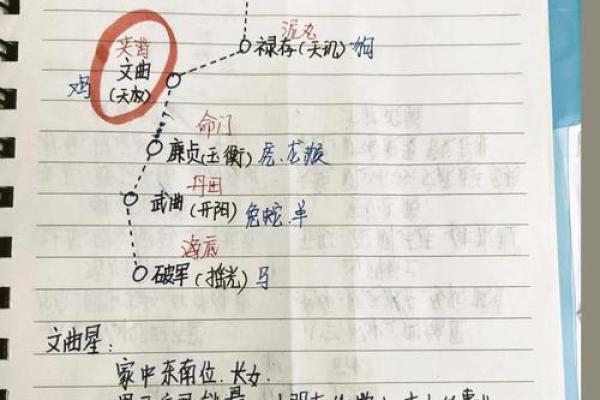 泥丸
禄存(天玑)狗
夹脊
鸡 文曲
(天权)
命门
廉贞(玉衡)虎.龙猴
丹田
武曲(开阳)兔蛇.羊
海底
破军(摇光)马
文曲星:
家中东南位.长女.